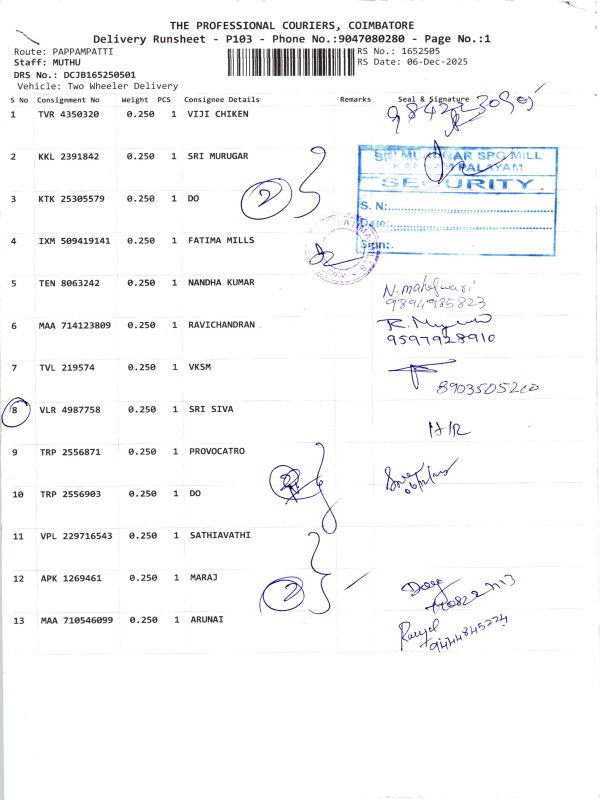 THE PROFESSIONAL COURIERS, COIMBATORE
Delivery Runsheet - P103 - Phone No.:9047080280 - Page No.:1
Route: PAPPAMPATTI
Staff: MUTHU
DRS No.: DCJB165250501
Vehicle: Two Wheeler Delivery
RS No.: 1652505
RS Date: 06-Dec-2025
S No Consignment No Weight PCS Consignee Details Remarks Seal & Signature
1 TVR 4350320 0.250 1 VIJI CHIKEN
2 KKL 2391842 0.250 1 SRI MURUGAR
SRI MURUGAR SPG MILL
PALAYAM
SECURITY
3 KTK 25305579 0.250 1 DO 2
S. N:
Date:
Sign:
4 IXM 509419141 0.250 1 FATIMA MILLS
5 TEN 8063242 0.250 1 NANDHA KUMAR N. maheswari
9894985823
6 MAA 714123809 0.250 1 RAVICHANDRAN
9597928910
7 TVL 219574 0.250 1 VKSM
8903505210
8 VLR 4987758 0.250 1 SRI SIVA
9 TRP 2556871 0.250 1 PROVOCATRO
10 TRP 2556903 0.250 1 DO
11 VPL 229716543 0.250 1 SATHIAVATHI
12 APK 1269461 0.250 1 MARAJ 2
13 MAA 710546099 0.250 1 ARUNAI
9444845224